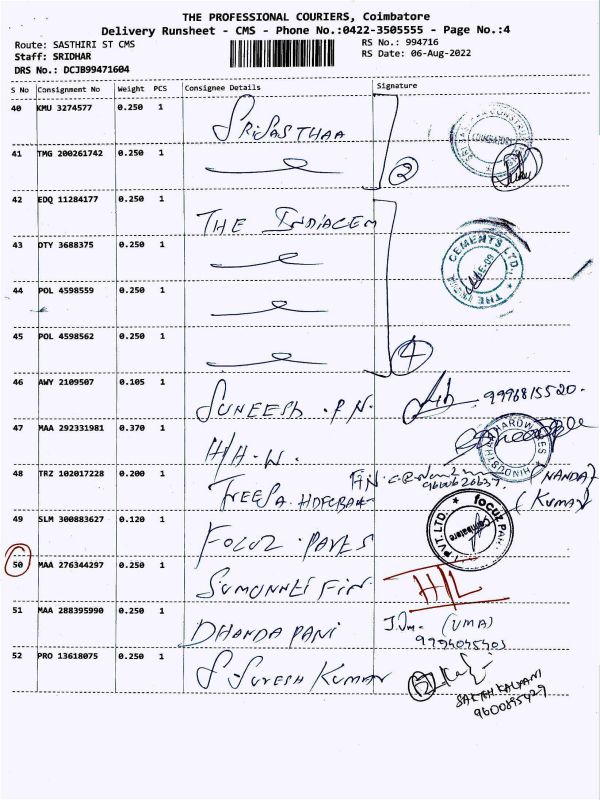 THE PROFESSIONAL COURIERS, Coimbatore
Delivery Runsheet - CMS - Phone No.:0422-3505555 - Page No.:4
Route: SASTHIRI ST CMS
RS No.: 994716
Staff: SRIDHAR
RS Date: 06-Aug-2022
DRS No.: DCJB99471604
S No Consignment No Weight PCS Consignee Details Signature
40 KMU 3274577 0.250 1 SRISASTHAA
41 TMG 200261742 0.250 1
2
42 EDQ 11284177 0.250 1 THE INDIACEM
43 DTY 3688375 0.250 1
CEMENTS LTD.
44 POL 4598559 0.250 1
45 POL 4598562 0.250 1
4
46 AWY 2109507 0.105 1 SUNEESH .P.N.
9996815520.
47 MAA 292331981 0.370 1 H/H.W.
HARDWARES
48 TRZ 102017228 0.200 1 TREESA. HDFCBANK
9600626637.
(NANDA
KUMAR
49 SLM 300883627 0.120 1 FOCUZ PARTS
focuz PARTS PVT. LTD.
Coimbatore
50 MAA 276344297 0.250 1 FIN
H/L
51 MAA 288395990 0.250 1 DHANDAPANI
(UMA)
52 PRO 13618075 0.250 1 S. SURESH KUMAR